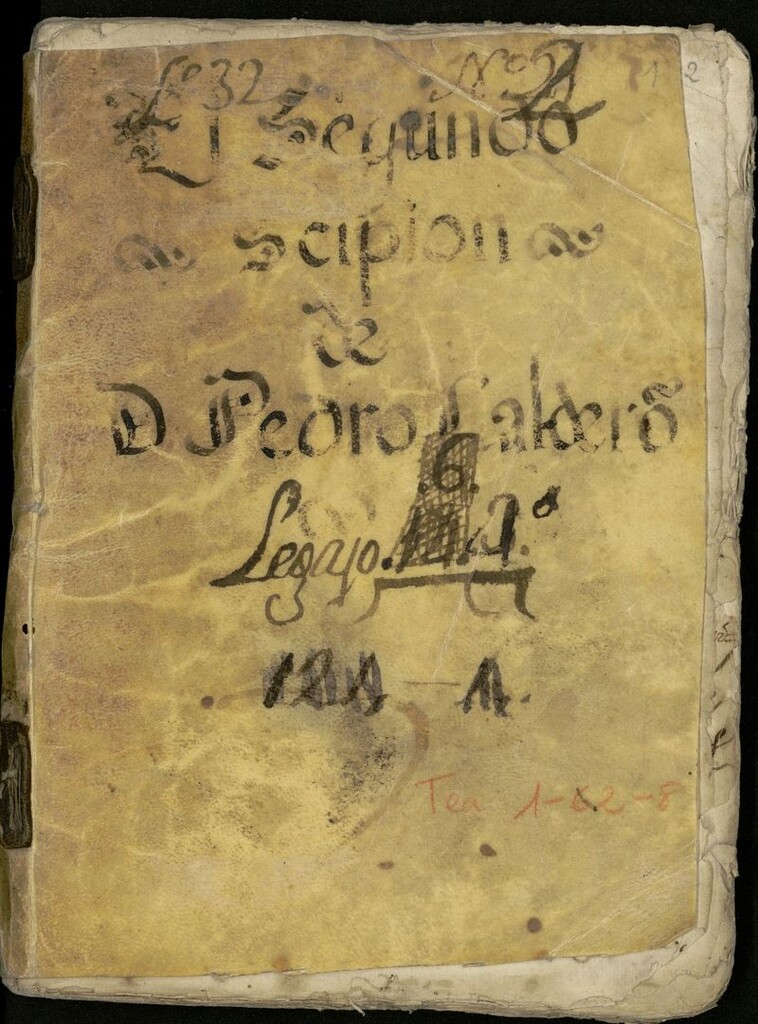 Lº 32 Nº 2
1 2
El Segundo
Scipion
de
D Pedro Calderõ
.6.
Legajo. 1.º
121 — 1.
Tea 1-62-8